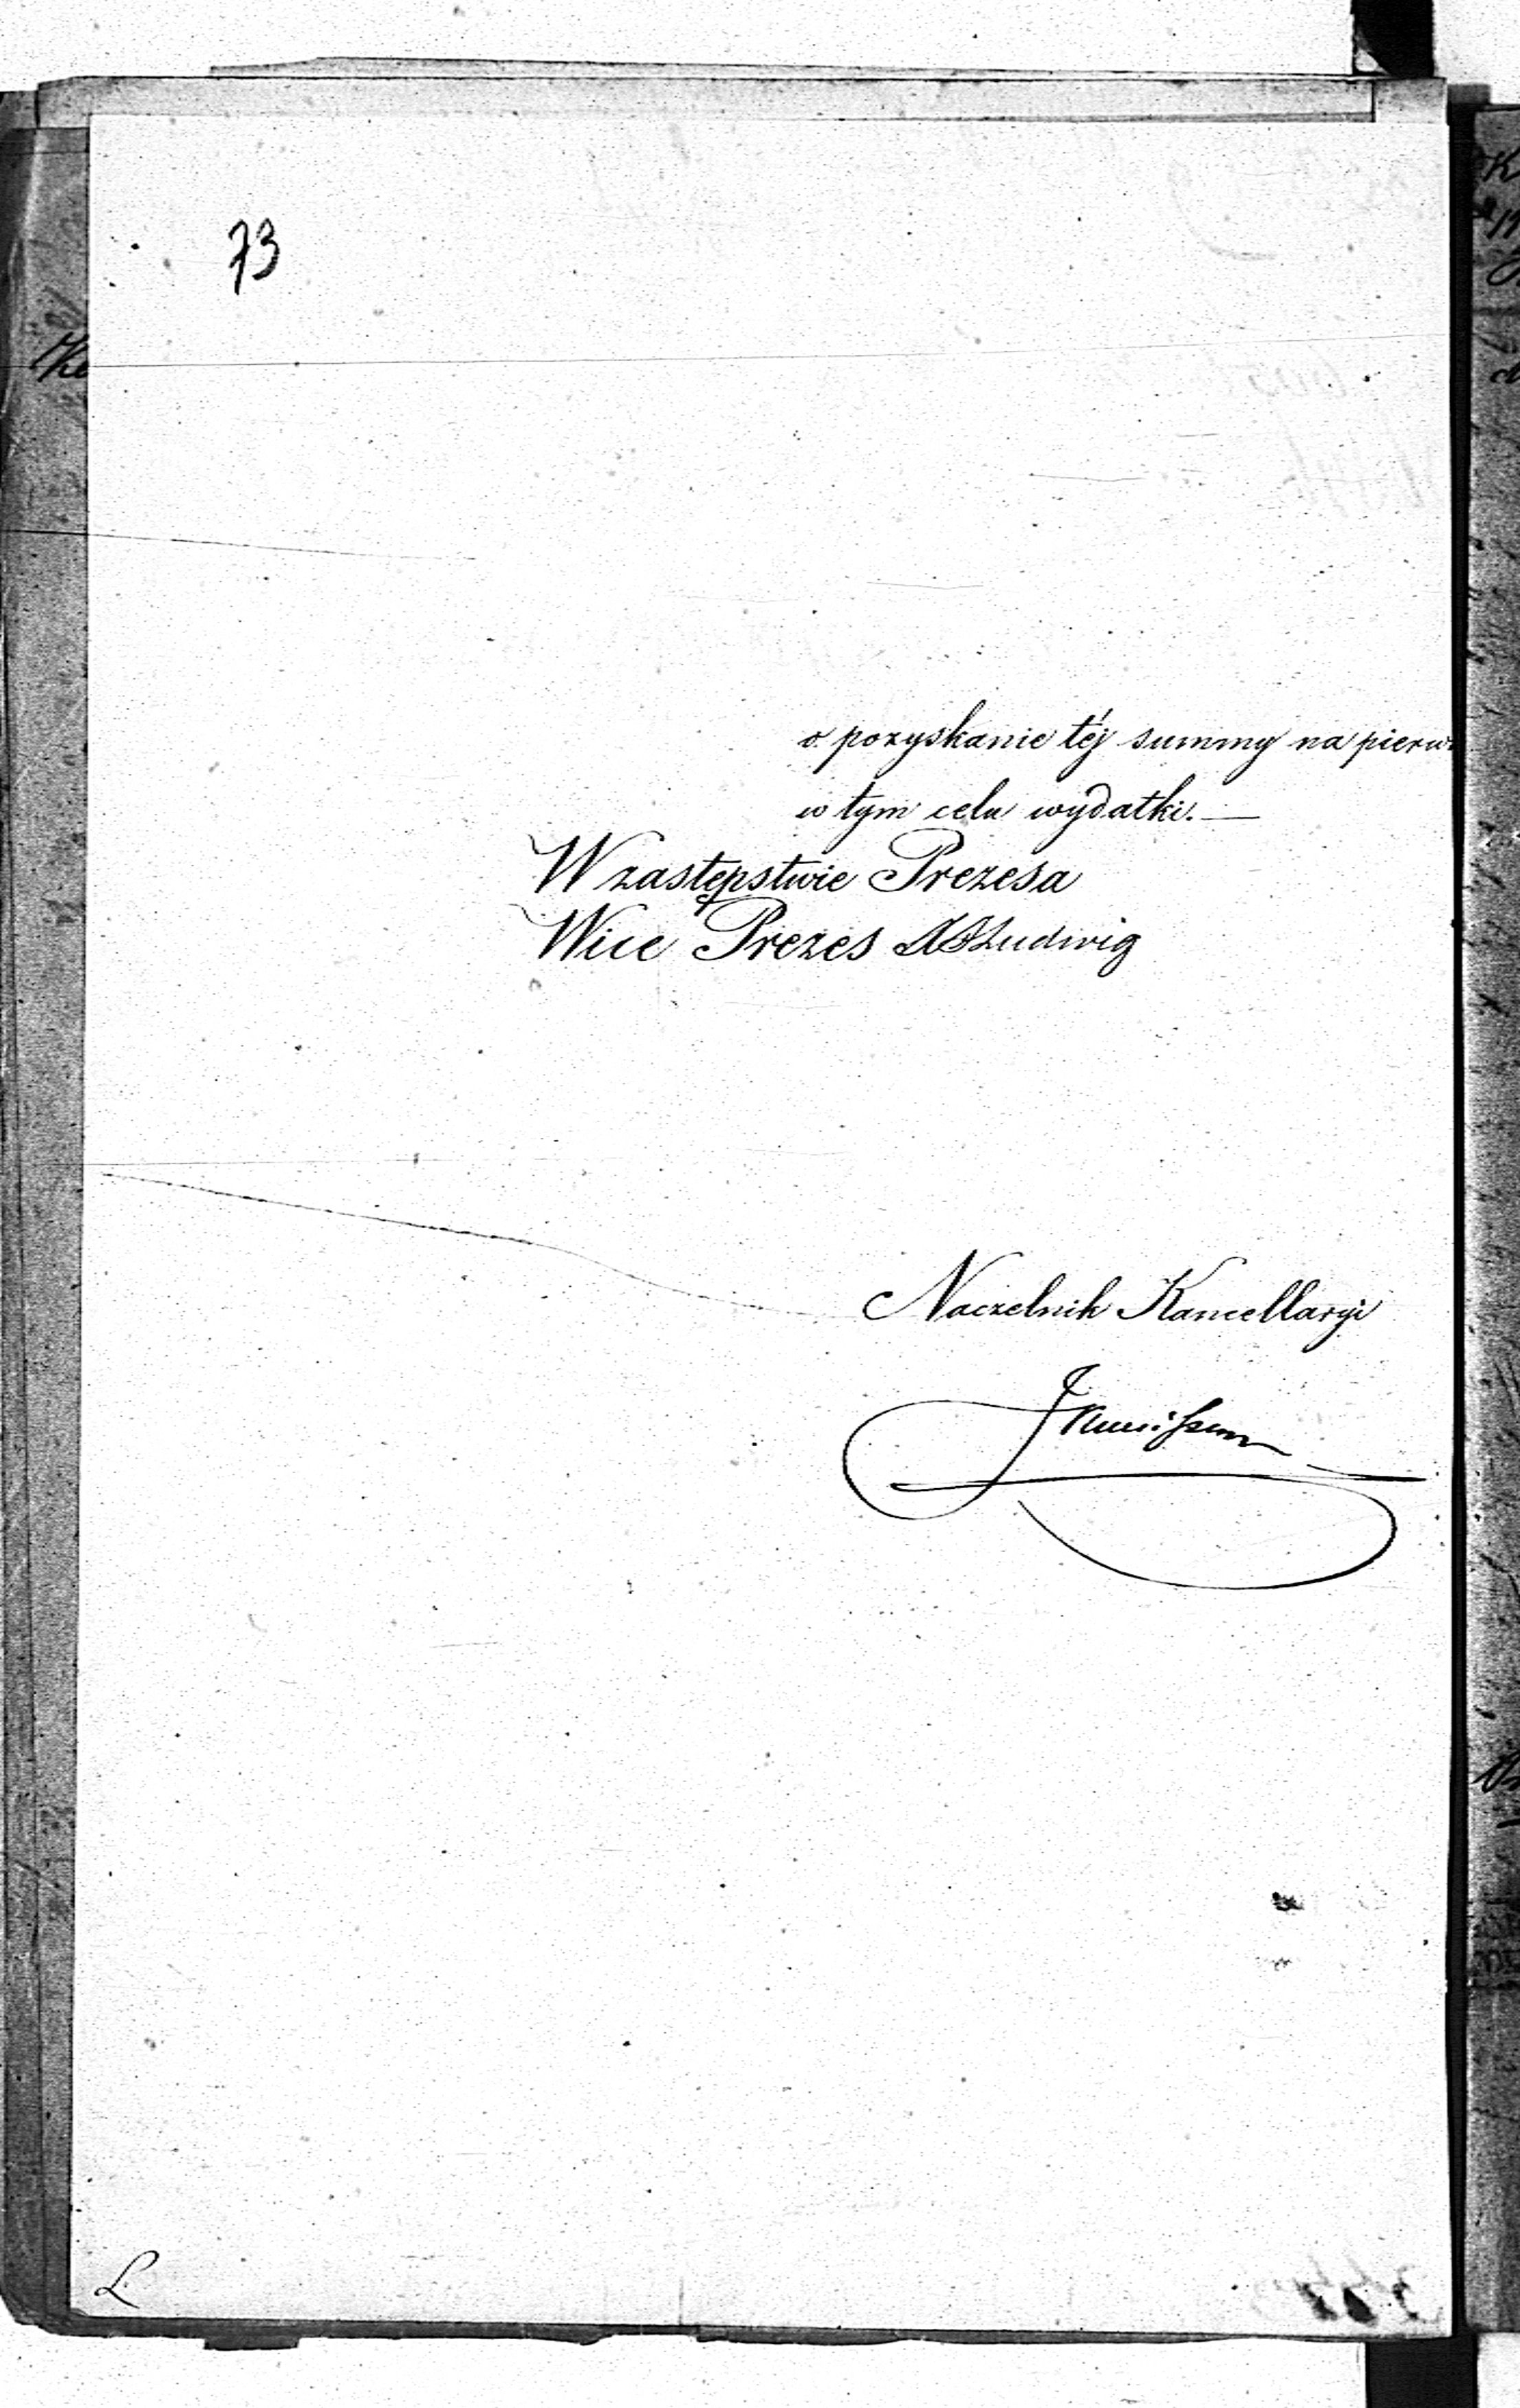 73
o pozyskanie téj summy na pierw
w tym celu wydatki. —
W zastępstwie Prezesa
Wice Prezes Ludwig
Naczelnik Kancellaryi
L.